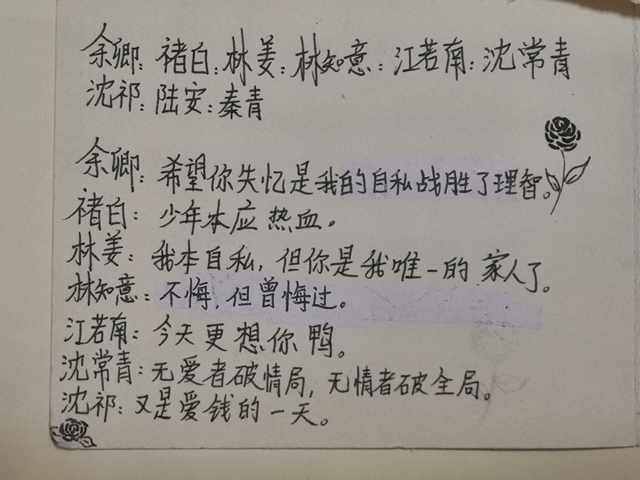 余卿：褚白：林姜：林知意：江若南：沈常青
沈祁：陆安：秦青
余卿：希望你失忆是我的自私战胜了理智。
褚白：少年本应热血。
林姜：我本自私，但你是我唯一的家人了。
林知意：不悔，但曾悔过。
江若南：今天更想你鸭。
沈常青：无爱者破情局，无情者破全局。
沈祁：又是爱钱的一天。